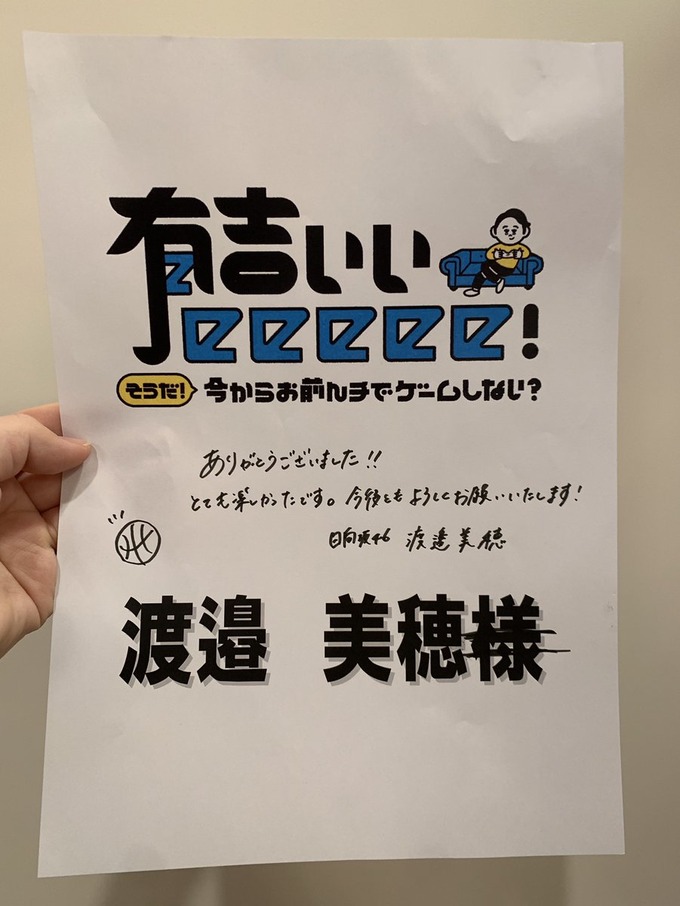 有吉ぃぃeeeee!
そうだ! 今からお前んチでゲームしない?
ありがとうございました!!
とても楽しかったです。今後ともよろしくお願いいたします!
日向坂46 渡邉美穂
渡邉 美穂様